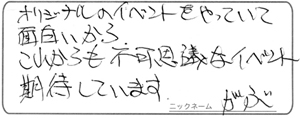 オリジナルのイベントをやっていて
面白いから
これからも不可思議なイベント
期待しています
ニックネーム がぶ